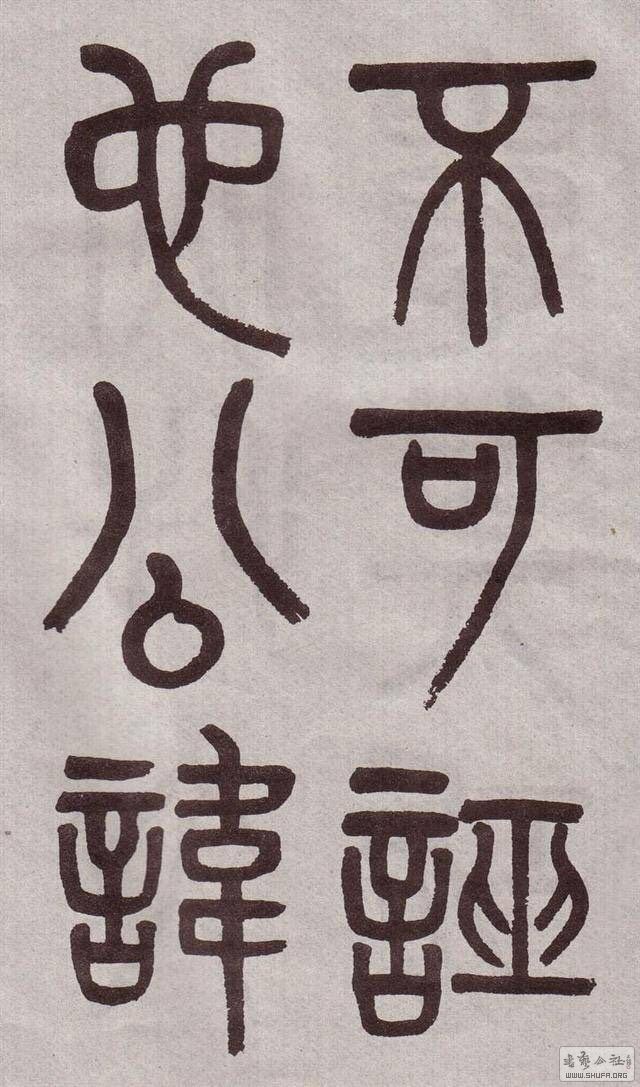 不可誣
也公諱
书艺公社
WWW.SHUFA.ORG